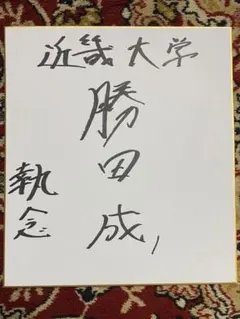 近畿大学
勝田成
執念